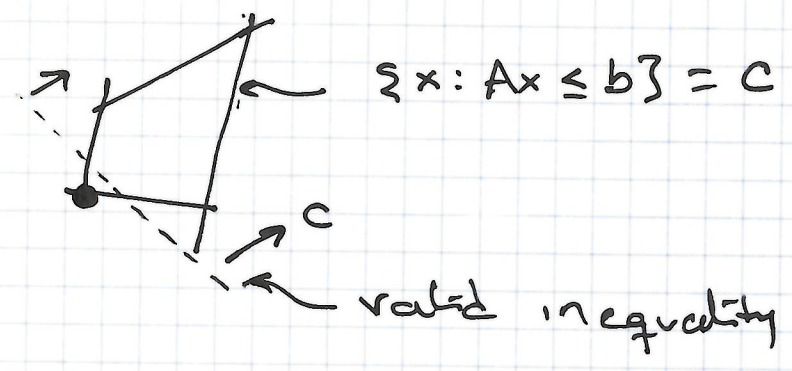 {x: Ax ≤ b} = C
c
valid inequality